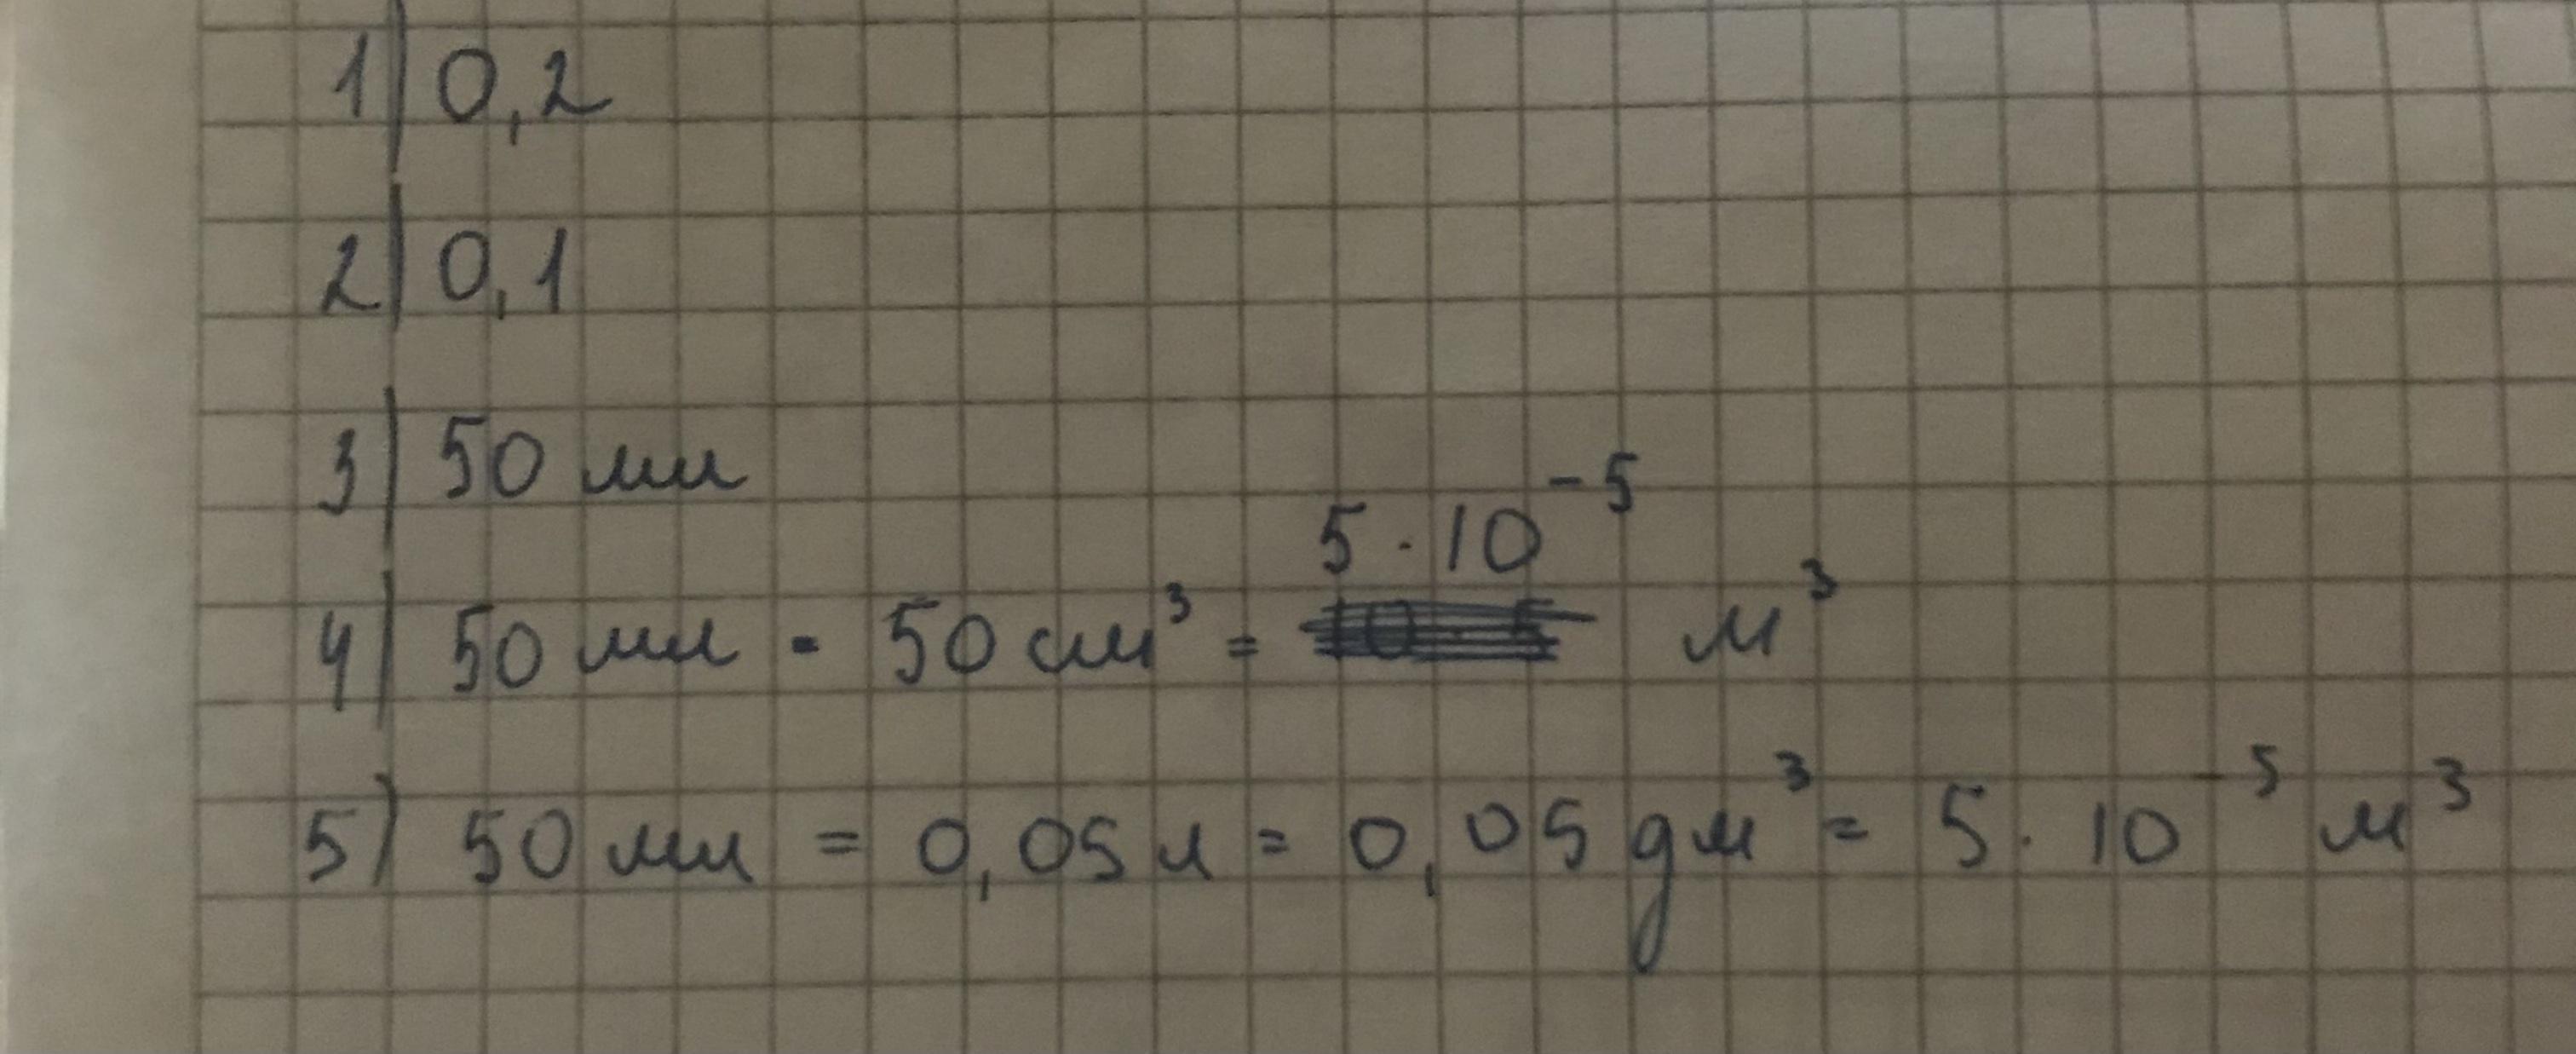 1) 0,2
2) 0,1
3) 50 мл
4) 50 мл = 50 см³ = 5 · 10⁻⁵ м³
5) 50 мл = 0,05 л = 0,05 дм³ = 5 · 10⁻⁵ м³